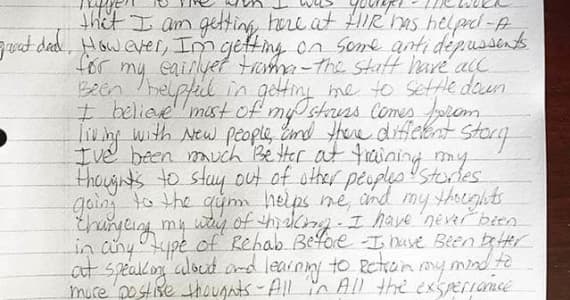 happen to me when I was younger - The work
that I am getting here at HIR has helped - A
great deal. However, Im getting on some anti depressents
for my eairlyer troma - The staff have all
Been helpful in getting me to settle down
I believe most of my stress Comes from
living with New people, and there different Story
I've been much Better at training my
thoughts to stay out of other peoples stories
going to the gym helps me, and my thoughts
changeing my way of thinking - I have never been
in any type of Rehab Before - I have Been better
at speaking aloud and learning to Retrain my mind to
more postive thoughts - All in All the exsperiance